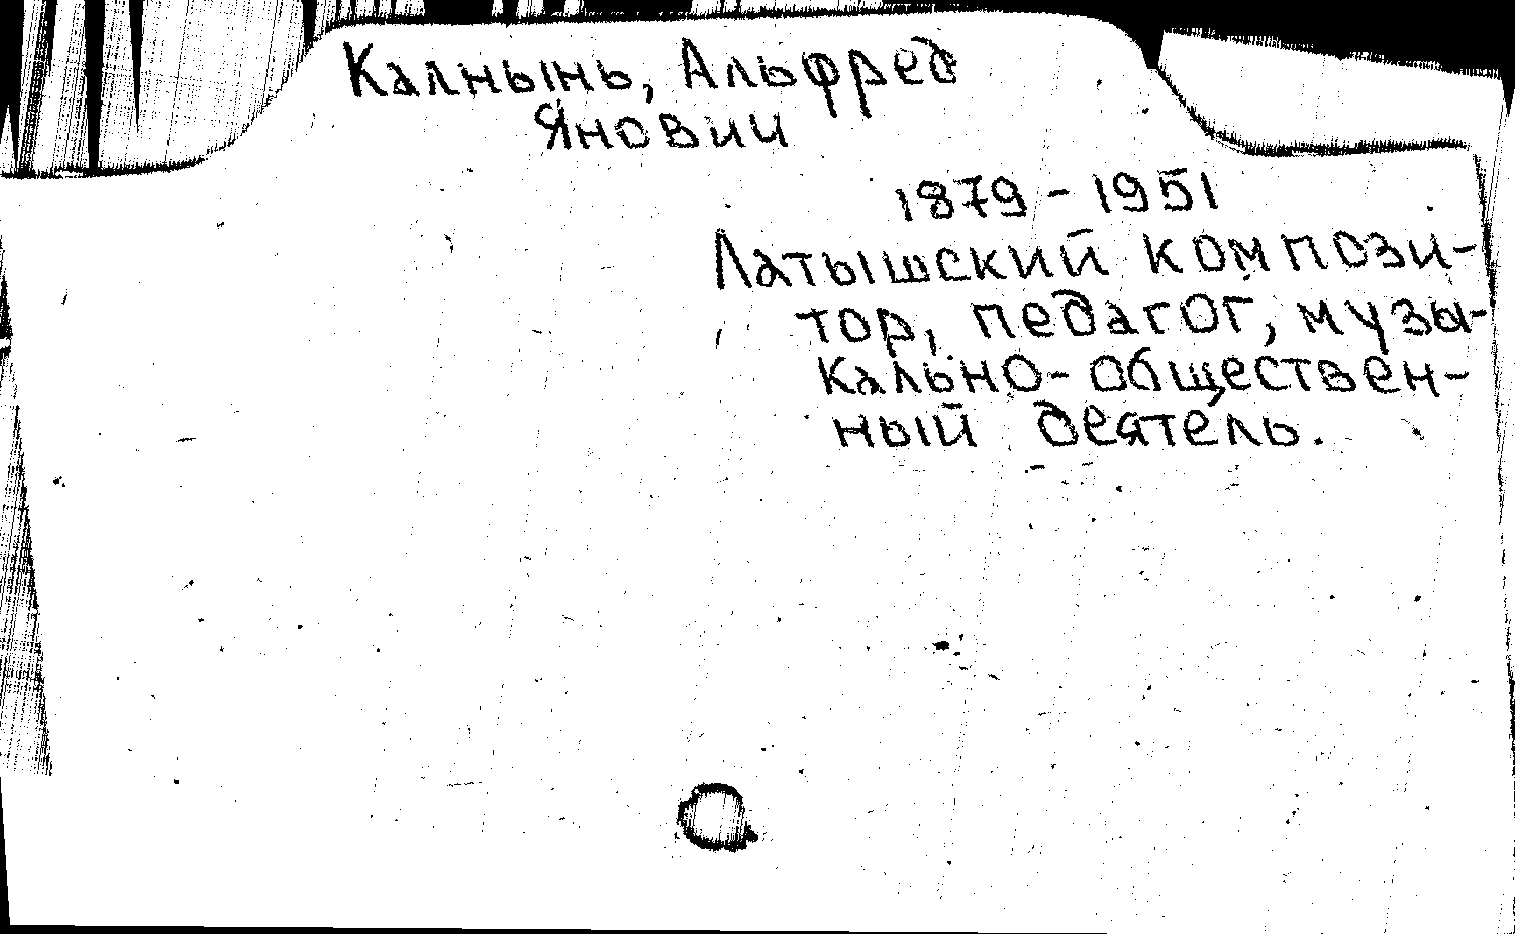 Калнынь, Альфред
Янович
1879-1951
Латышский компози-
тор, педагог, музы-
кально-обществен-
ный деятель.